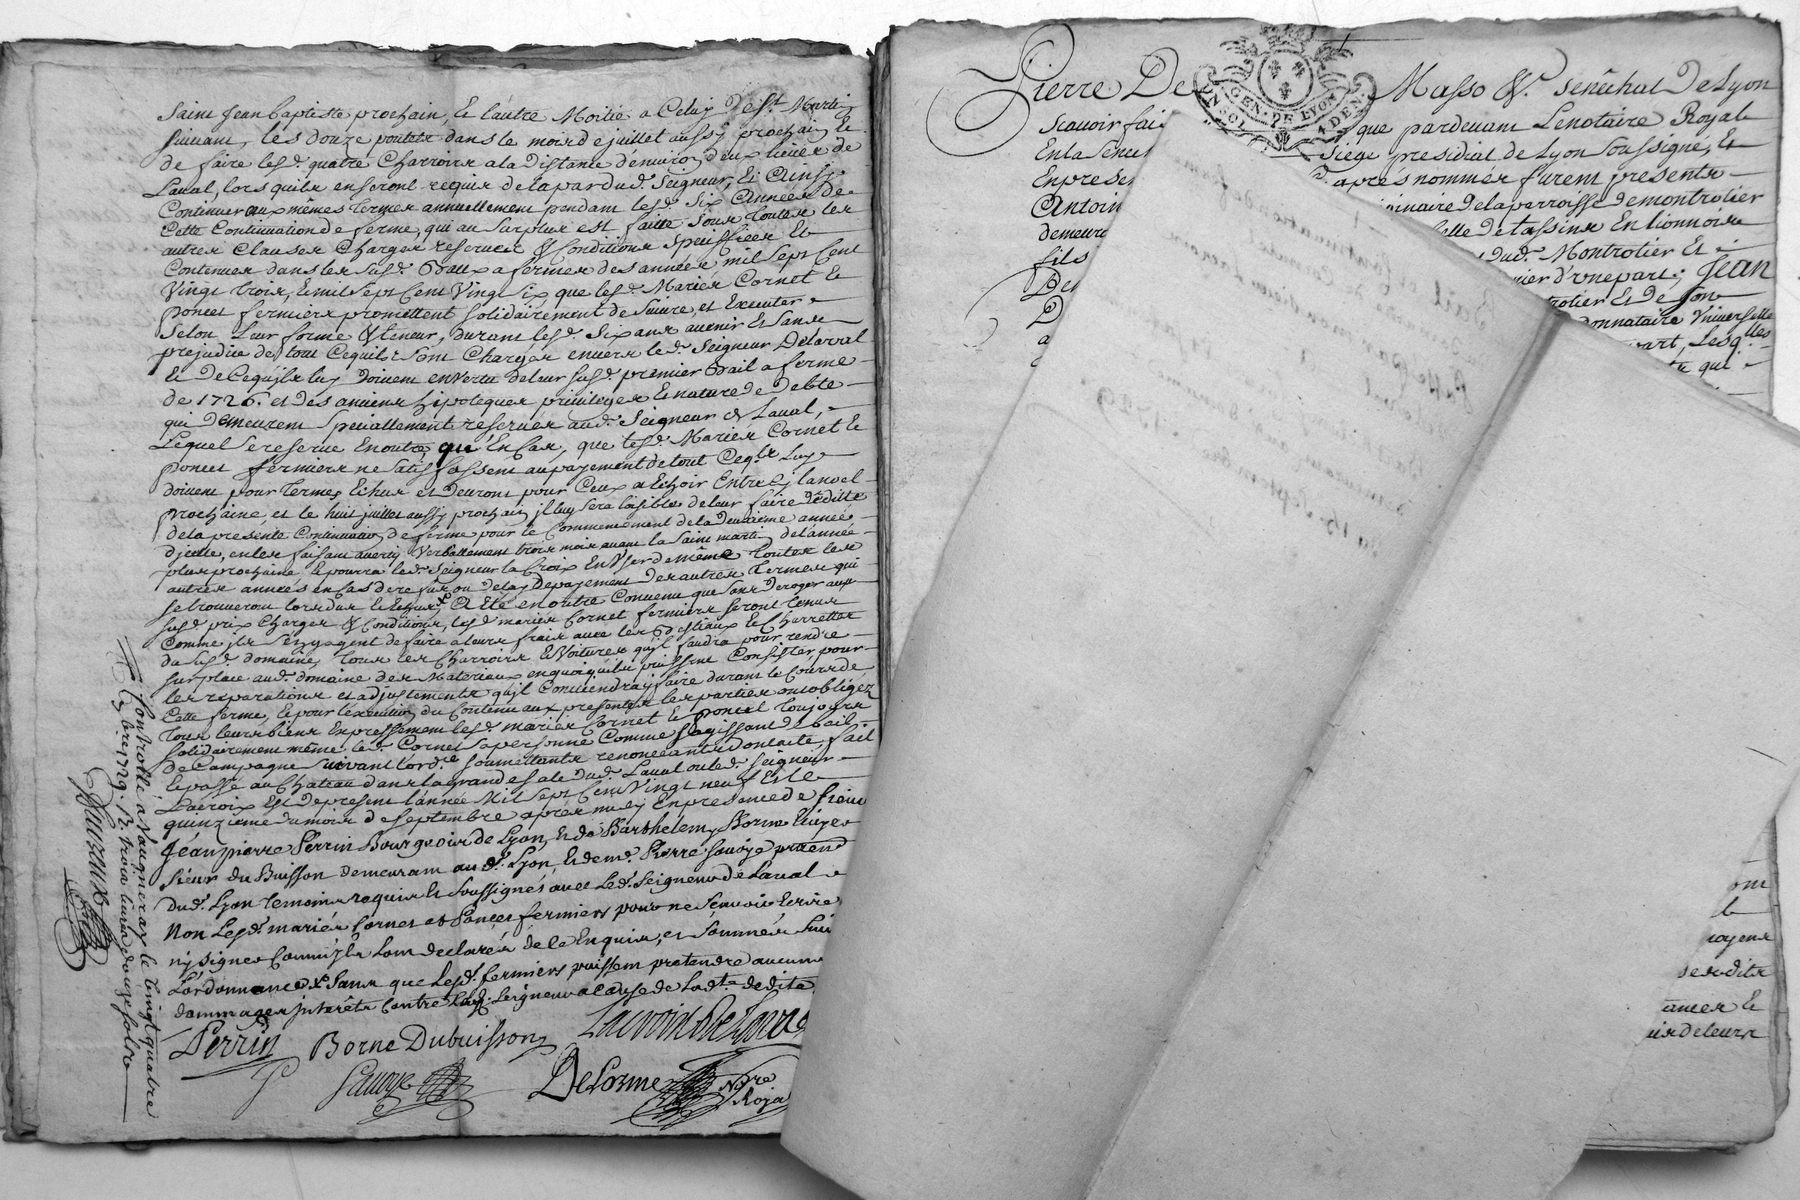 Saint Jean baptiste prochain, Et lautre Moitié a Celuy de St. Martin
suivant, les douze poulets dans le mois de juillet aussy prochain Et
de faire lesd. quatre Charroirs a la Distance denviron deux lieües de
Laval, lors quils en seront requis de la part dud. Seigneur, Et Ainsy
Continuer aux mêmes termes annuellement pendant lesd. six Années de
Cette Continuation de ferme, qui au surplus est faitte sous toutes les
autres Clauses Charges reserves & Conditions speciffiées Et
Contenues dans les susd. Baux a fermes des années mil sept Cent
Vingt trois, & mil sept Cent Vingt six que lesd. Mariés Cornet Et
poncet fermiers promettent solidairement de suivre, et Executer
Selon Leur forme & teneur, durant lesd. six ans avenir Et sans
prejudice de tout Cequils sont Chargés envers led. Seigneur Delaval
Et De Cequils luy Doivent en vertu de leur susd. premier Bail a ferme
de 1726. et des anciens hipoteques privileges Et nature de Debte
qui Demeurent speciallement reservés aud. Seigneur de Laval,
Lequel se reserve En outre, que En Cas, que lesd. Mariés Cornet Et
poncet fermiers ne satisfassent au payement de tout Ceqls Luy
doivent pour termes Echus et Devront pour Ceux a Echoir Entre Cy lanoel
prochaine, et le huit juillet aussy prochain jl luy sera loisible de leur faire Déditte
de la presente Continuation de ferme pour le Commencement de la Deuxieme année
d'jcelle, en les faisant avertir Verballement trois mois avant la saint martin de lannée
plus prochaine Et pourra led. Seigneur la Croix En User de même toutes les
autres années en Cas de refus ou delay De payement des autres termes qui
se trouveront lors dus Et Echus, A Eté en outre Convenu que sans Deroger aux
susd. prix Charges & Conditions, lesd. mariés Cornet fermiers seront tenus
Comme jls s'engagent de faire a leurs frais avec les Bestiaux Et Charrettes
du susd. domaine, tous les Charroirs Et Voitures qu'jl faudra pour rendre
sur place aud. domaine des Materiaux en quoi quils puissent Consister, pour
les reparations et adjustements qu'jl Conviendra y faire durant le Cours de
Cette ferme, Et pour lexecution du Contenu aux presentes les parties ont obligéz
tous leurs biens Expressement lesd. mariés Cornet Et poncet toujours
solidairement même led. Cornet sa personne Comme s'agissant de bail
de Campagne suivant lord.ce soumettants renonceants dont acte, fait
Et passé au Chateau dans la grande sale dud. Laval ou led. seigneur
Lacroix Est De present lannée Mil sept Cent Vingt neuf Et le
quinzieme du mois de septembre apres midy En presence de sieur
Jean pierre Perrin Bourgeois de Lyon, Et de Barthelemy Borne Ecuyer
Sieur du Buisson demeurant aud. Lyon, Et de me. Pierre Savoye praticien
Dud. Lyon temoins requis Et Soussignés avec Led. Seigneur de Laval
Non Lesd. mariés Cornet et Poncet fermiers pour ne sçavoir Ecrire
ny signer Comme jls L'ont declaré de ce Enquis, et Sommés Suivant
L'ordonnance & sans que Lesd. fermiers puissent pretendre aucuns
dommages jnterêts contre Led. Seigneur a Cause de Ladte. dedite
Perrin Borne Dubuisson Lacroix De Laval
Savoye DeLorme Nore Roya
Controllé a Vaugneray le Vingt quatre
7bre 1729. R. trois livres douze sols
Pierre De Masso Sr. Senêchal De Lyon
GEN. DE LYON
Scavoir fai que pardevant Lenotaire Royal
En la Senec Siége presidial de Lyon Soussigné, Et
En prese apres nommés furent presents
Antoin de la parroisse de montrotier
demeure de tassins En lionnois
fils dud. Montrotier Et
De d'une part; Jean
Et De son
donnataire Vniverselle
part, Lesq.lles
qui
1729
oyens
ances Et
de leurs